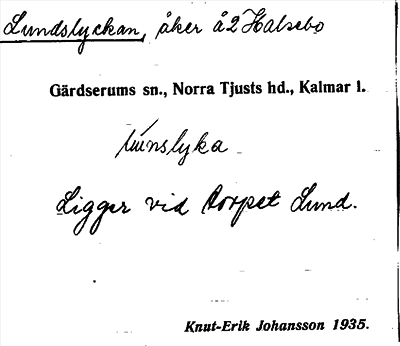 Lundslyckan, åker å 2 Halsebo
Gärdserums sn., Norra Tjusts hd., Kalmar l.
Ligger vid torpet Lund.
Knut-Erik Johansson 1935.